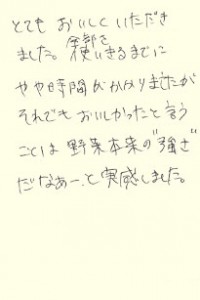 とても おいしく いただき
ました。全部を使いきるまでに
やや時間がかかりましたが
それでもおいしかったと言う
ことは 野菜本来の"強さ"
だなあー、と実感しました。